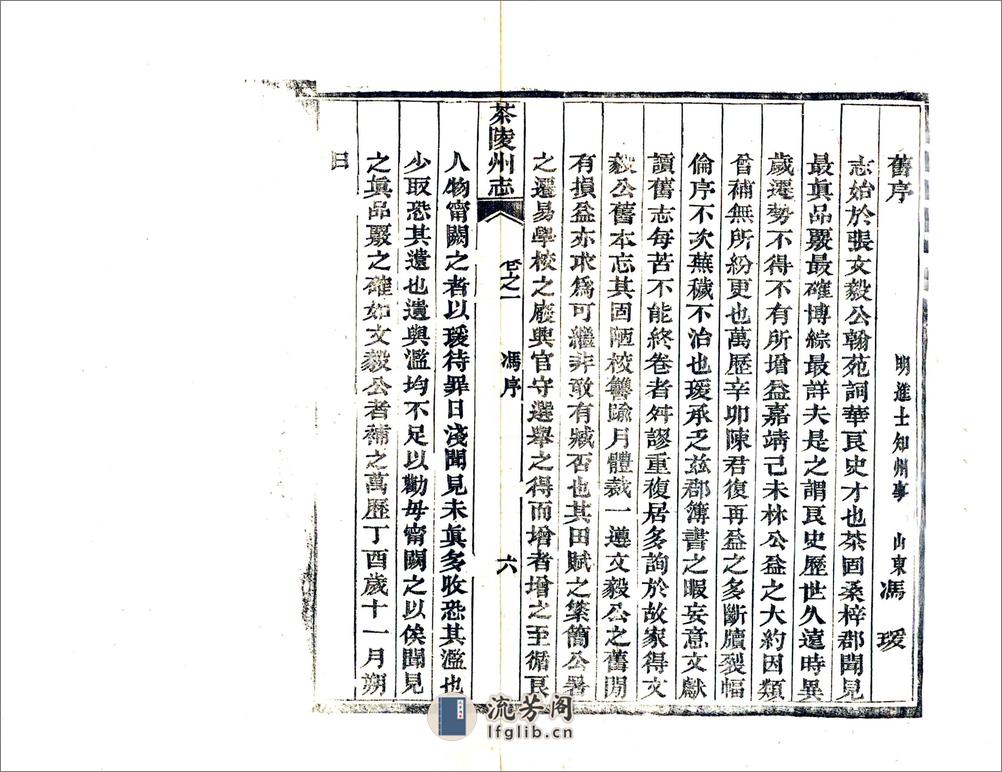 舊序
明進士知州事 山東馮瑗
志始於張文毅公翰苑詞華良史才也茶固桑梓郡聞見
最眞品覈最確博綜最詳夫是之謂良史歷世久遠時異
歲遷勢不得不有所增益嘉靖己未林公益之大約因類
曾補無所紛更也萬歷辛卯陳君復再益之多斷牘裂幅
倫序不次蕪穢不治也瑗承乏茲郡簿書之暇妄意文獻
讀舊志每苦不能終卷者舛謬重複居多詢於故家得文
毅公舊本忘其固陋校讐踰月體裁一遵文毅公之舊間
有損益亦求爲可繼非敢有臧否也其田賦之繁簡公署
之遷易學校之廢興官守選舉之得而增者增之至循良
茶陵州志
卷之一
馮序
六
人物甯闕之者以瑗待罪日淺聞見未眞多收恐其濫也
少取恐其遺也遺與濫均不足以勸毋甯闕之以俟聞見
之眞品覈之確如文毅公者補之萬歷丁酉歲十一月朔
日
流芳阁
lfglib.cn